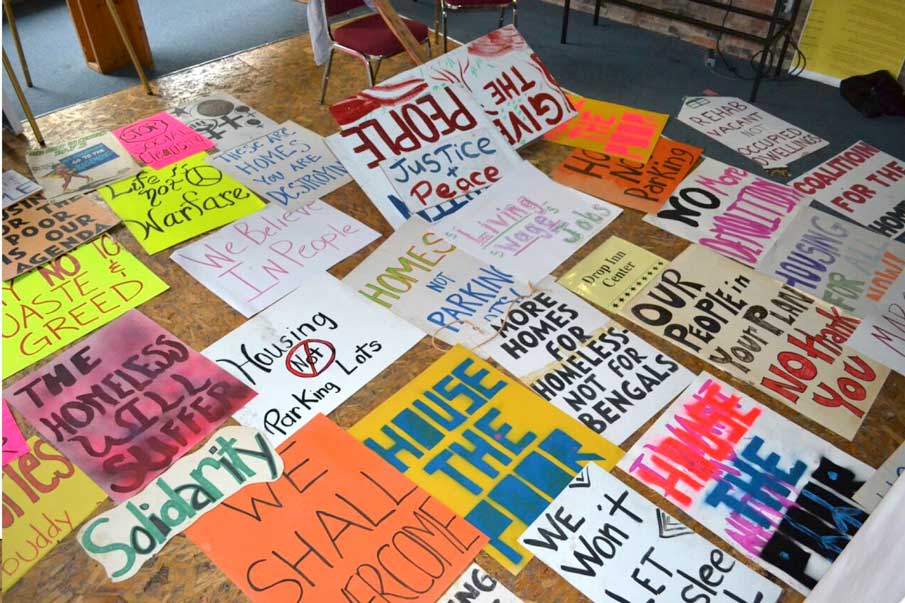 STOP
Social
Cleansing
Life is
not
Warfare
These Are
HOMES
You Are
DESTROYING
PEOPLE
GIVE
THE
Justice
+
Peace
THE
POOR
Parking
REHAB
VACANT
NOT
OCCUPIED
DWELLINGS
NO More
DEMOLITION
COALITION
FOR THE
HOUSING
FOR ALL
Now!!
POOR IS
OUR
AGENDA
We Believe
In People
"Living
Wage"
Jobs
HOMES
NOT
PARKING
Drop Inn
Center
OUR
PEOPLE in
Your PLAN
NO thank
You
NO TO
WASTE &
GREED
Housing
Not
Parking Lots
MORE
HOMES
FOR
HOMELESS-
NOT FOR
BENGALS
THE
HOMELESS
WILL
SUFFER
HOUSE
THE
POOR
THE
Solidarity
WE
SHALL
OVERCOME
We
Won't
LET
buddy